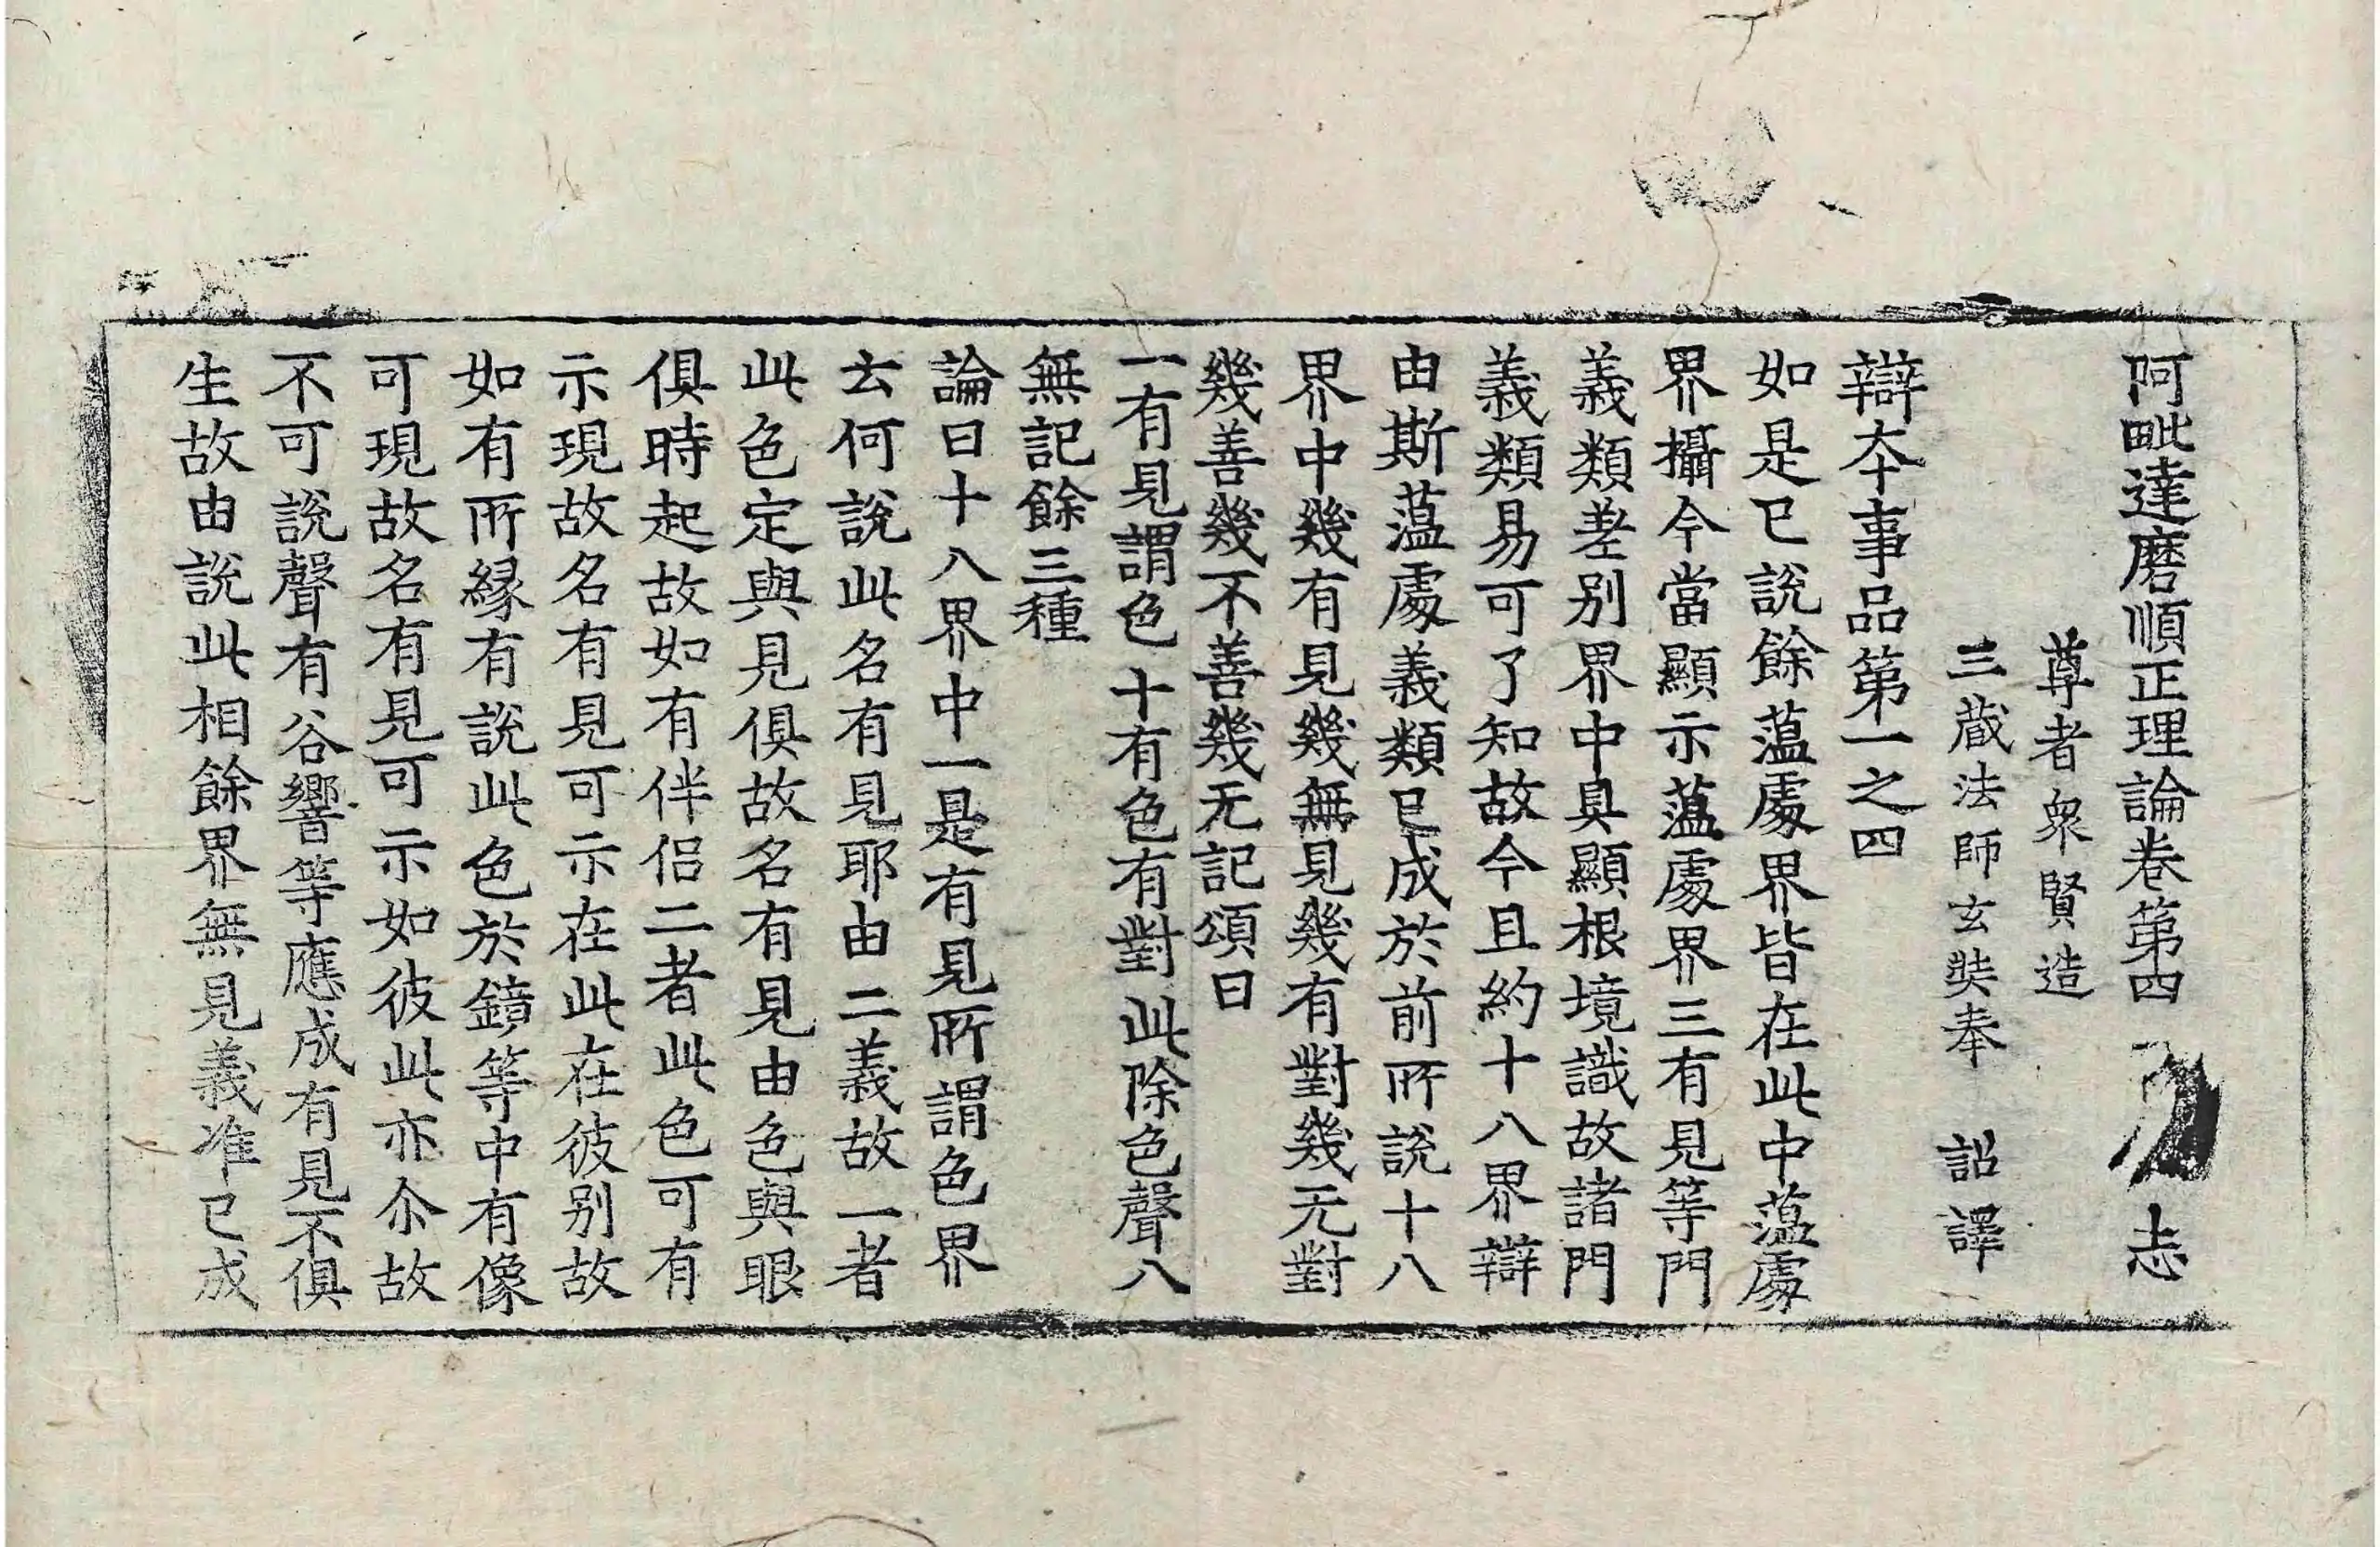 阿毗達磨順正理論卷第四 志
尊者衆賢造
三藏法師玄奘奉 詔譯
辯本事品第一之四
如是已說餘薀處界皆在此中薀處
界攝今當顯示薀處界三有見等門
義類差别界中具顯根境識故諸門
義類易可了知故今且約十八界辯
由斯薀處義類已成於前所說十八
界中幾有見幾無見幾有對幾无對
幾善幾不善幾无記頌曰
一有見謂色十有色有對此除色聲八
無記餘三種
論曰十八界中一是有見所謂色界
云何說此名有見耶由二義故一者
此色定與見俱故名有見由色與眼
俱時起故如有伴侣二者此色可有
示現故名有見可示在此在彼别故
如有所縁有說此色於鏡等中有像
可現故名有見可示如彼此亦尒故
不可說聲有谷響等應成有見不俱
生故由說此相餘界無見義准已成